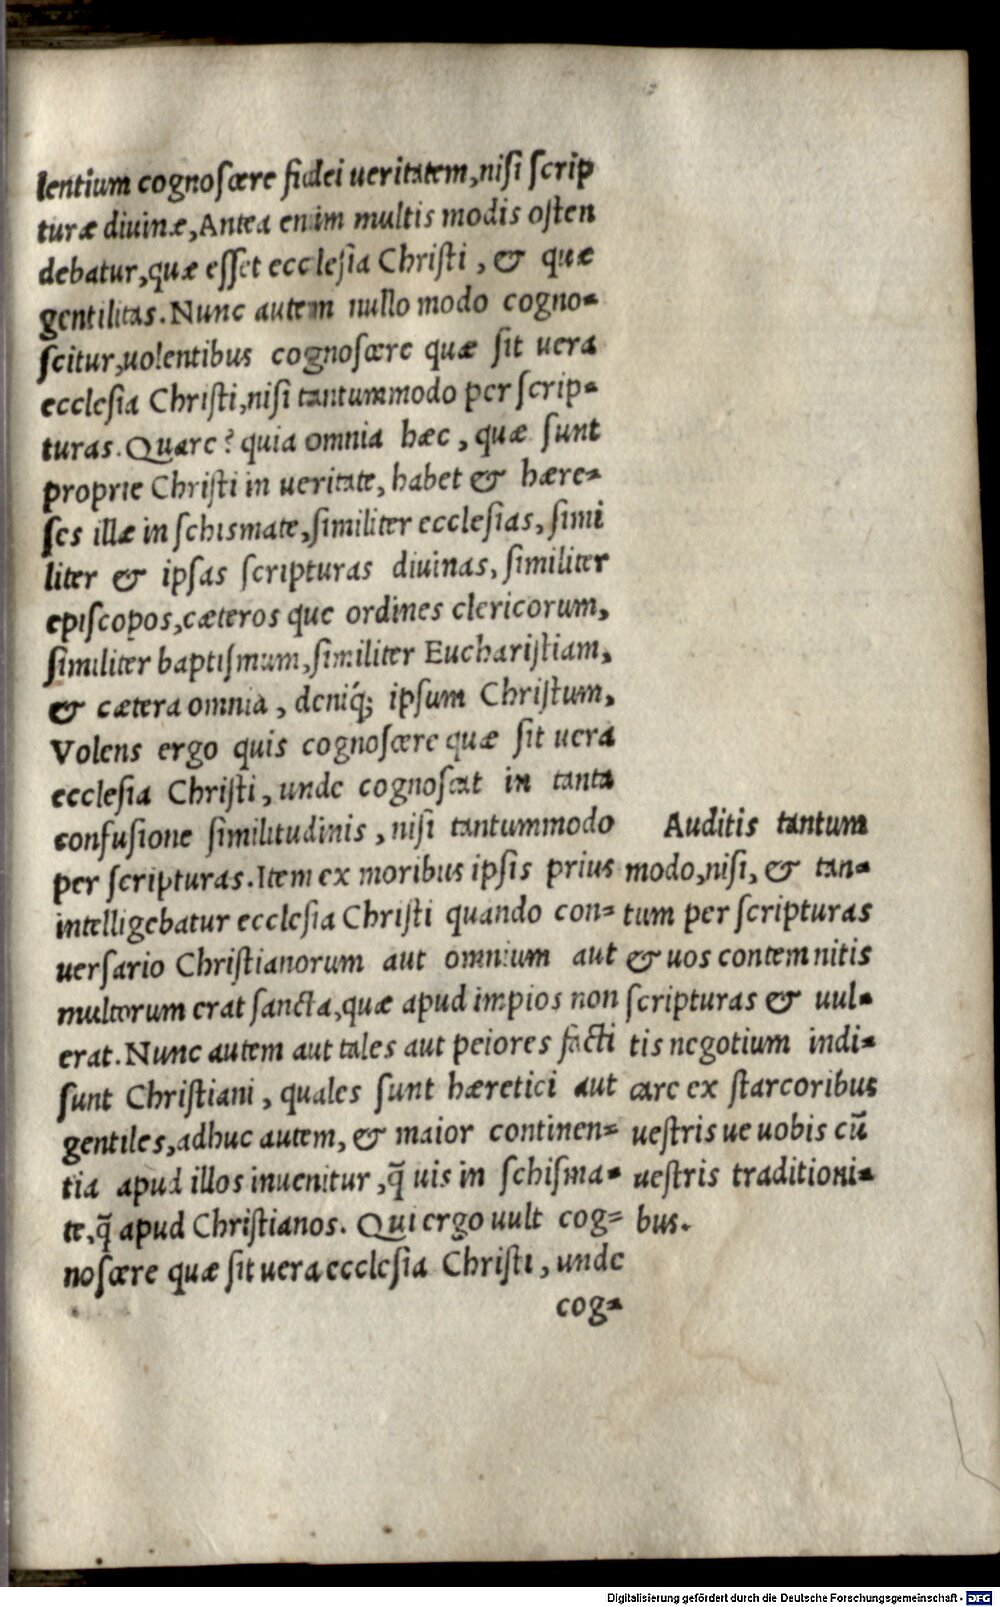 lentium cognoſcere fidei ueritatem, niſi ſcrip
turæ diuinæ, Antea enim multis modis oſten
debatur, quæ eſſet eccleſia Chriſti, & quæ
gentilitas. Nunc autem nullo modo cogno=
ſcitur, uolentibus cognoſcere quæ ſit uera
eccleſia Chriſti, niſi tantummodo per ſcrip=
turas. Quare? quia omnia hæc, quæ ſunt
proprie Chriſti in ueritate, habet & hære=
ſes illæ in ſchismate, ſimiliter eccleſias, ſimi
liter & ipſas ſcripturas diuinas, ſimiliter
epiſcopos, cæteros que ordines clericorum,
ſimiliter baptiſmum, ſimiliter Euchariſtiam,
& cætera omnia, deniq́; ipſum Chriſtum,
Volens ergo quis cognoſcere quæ ſit uera
eccleſia Chriſti, unde cognoſcat in tanta
confuſione ſimilitudinis, niſi tantummodo
per ſcripturas. Item ex moribus ipſis prius
intelligebatur eccleſia Chriſti quando con=
uerſario Chriſtianorum aut omnium aut
multorum erat ſancta, quæ apud impios non
erat. Nunc autem aut tales aut peiores facti
ſunt Chriſtiani, quales ſunt hæretici aut
gentiles, adhuc autem, & maior continen=
tia apud illos inuenitur, q̃ uis in ſchiſma=
te, q̃ apud Chriſtianos. Qui ergo uult cog=
noſcere quæ ſit uera eccleſia Chriſti, unde
cog=
Auditis tantum
modo, niſi, & tan=
tum per ſcripturas
& uos contemnitis
ſcripturas & uul=
tis negotium indi=
care ex ſtarcoribus
ueſtris ue uobis cū
ueſtris traditioni=
bus.
Digitalisierung gefördert durch die Deutsche Forschungsgemeinschaft - DFG